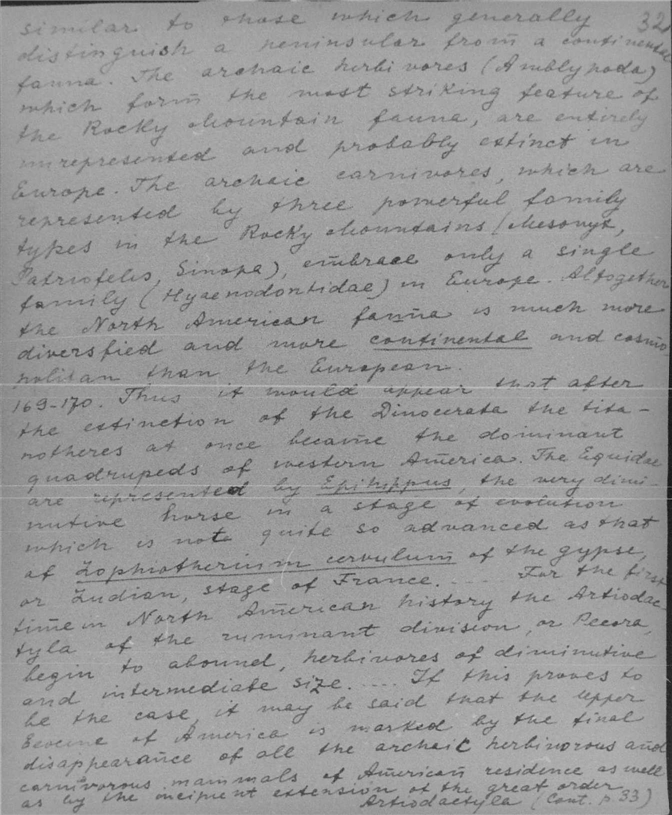 32
similar to those which generally
distinguish a peninsular from a continental
fauna. The archaic herbivores (Amblypoda)
which form the most striking feature of
the Rocky Mountain fauna, are entirely
unrepresented and probably extinct in
Europe. The archaic carnivores, which are
represented by three powerful family
types in the Rocky Mountains (Mesonyx,
Patriofelis, Sinopa), embrace only a single
family (Hyaenodontidae) in Europe. Altogether
the North American fauna is much more
diversfied and more continental and cosmo
politan than the European.
169-170. Thus it would appear that after
the extinction of the Dinocerata the tita-
notheres at once became the dominant
quadrupeds of western America. The Equidae
are represented by Epihippus, the very dimi-
nutive horse in a stage of evolution
which is not quite so advanced as that
of Lophiotherium cervulum of the gypse,
or Ludian, stage of France. .... For the first
time in North American history the Artiodac
tyla of the ruminant division, or Pecora,
begin to abound, herbivores of diminutive
and intermediate size. .... If this proves to
be the case, it may be said that the Upper
Eocene of America is marked by the final
disappearance of all the archaic herbivorous and
carnivorous mammals of American residence as well
as by the incipient extension of the great order
Artiodactyla (Cont. p 33)